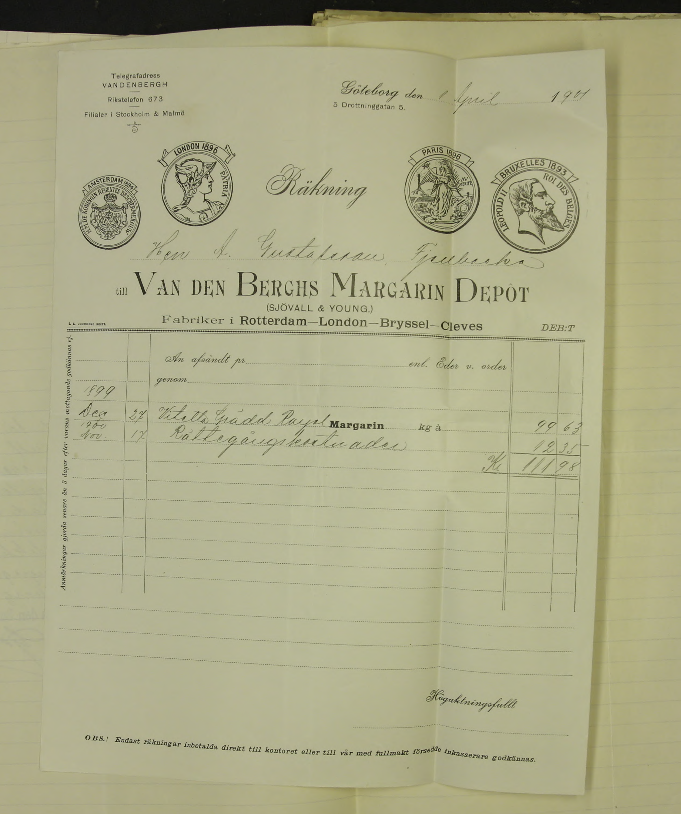 Telegrafadress
VANDENBERGH
Rikstelefon 673
Filialer i Stockholm & Malmö
Göteborg den April 1901
5 Drottninggatan 5.
AMSTERDAM
LONDON 1896
PATRIA
PARIS 1896
BRUXELLES 1893
LEOPOLD II ROI DES BELGES
Räkning
Herr A. Gustafsson, Fjellbacka
till VAN DEN BERGHS MARGARIN DEPÔT
(SJÖVALL & YOUNG.)
Fabriker i Rotterdam—London—Bryssel—Cleves DEB:T
An afsändt pr enl. Eder v. order
genom
1899
Dec 27 Margarin kg à 99 63
1900
Nov 17 Rättegångskostnader 12 35
Kr 111 98
Högaktningsfullt
OBS.! Endast räkningar inbetalda direkt till kontoret eller till vår med fullmakt försedde inkasserare godkännas.